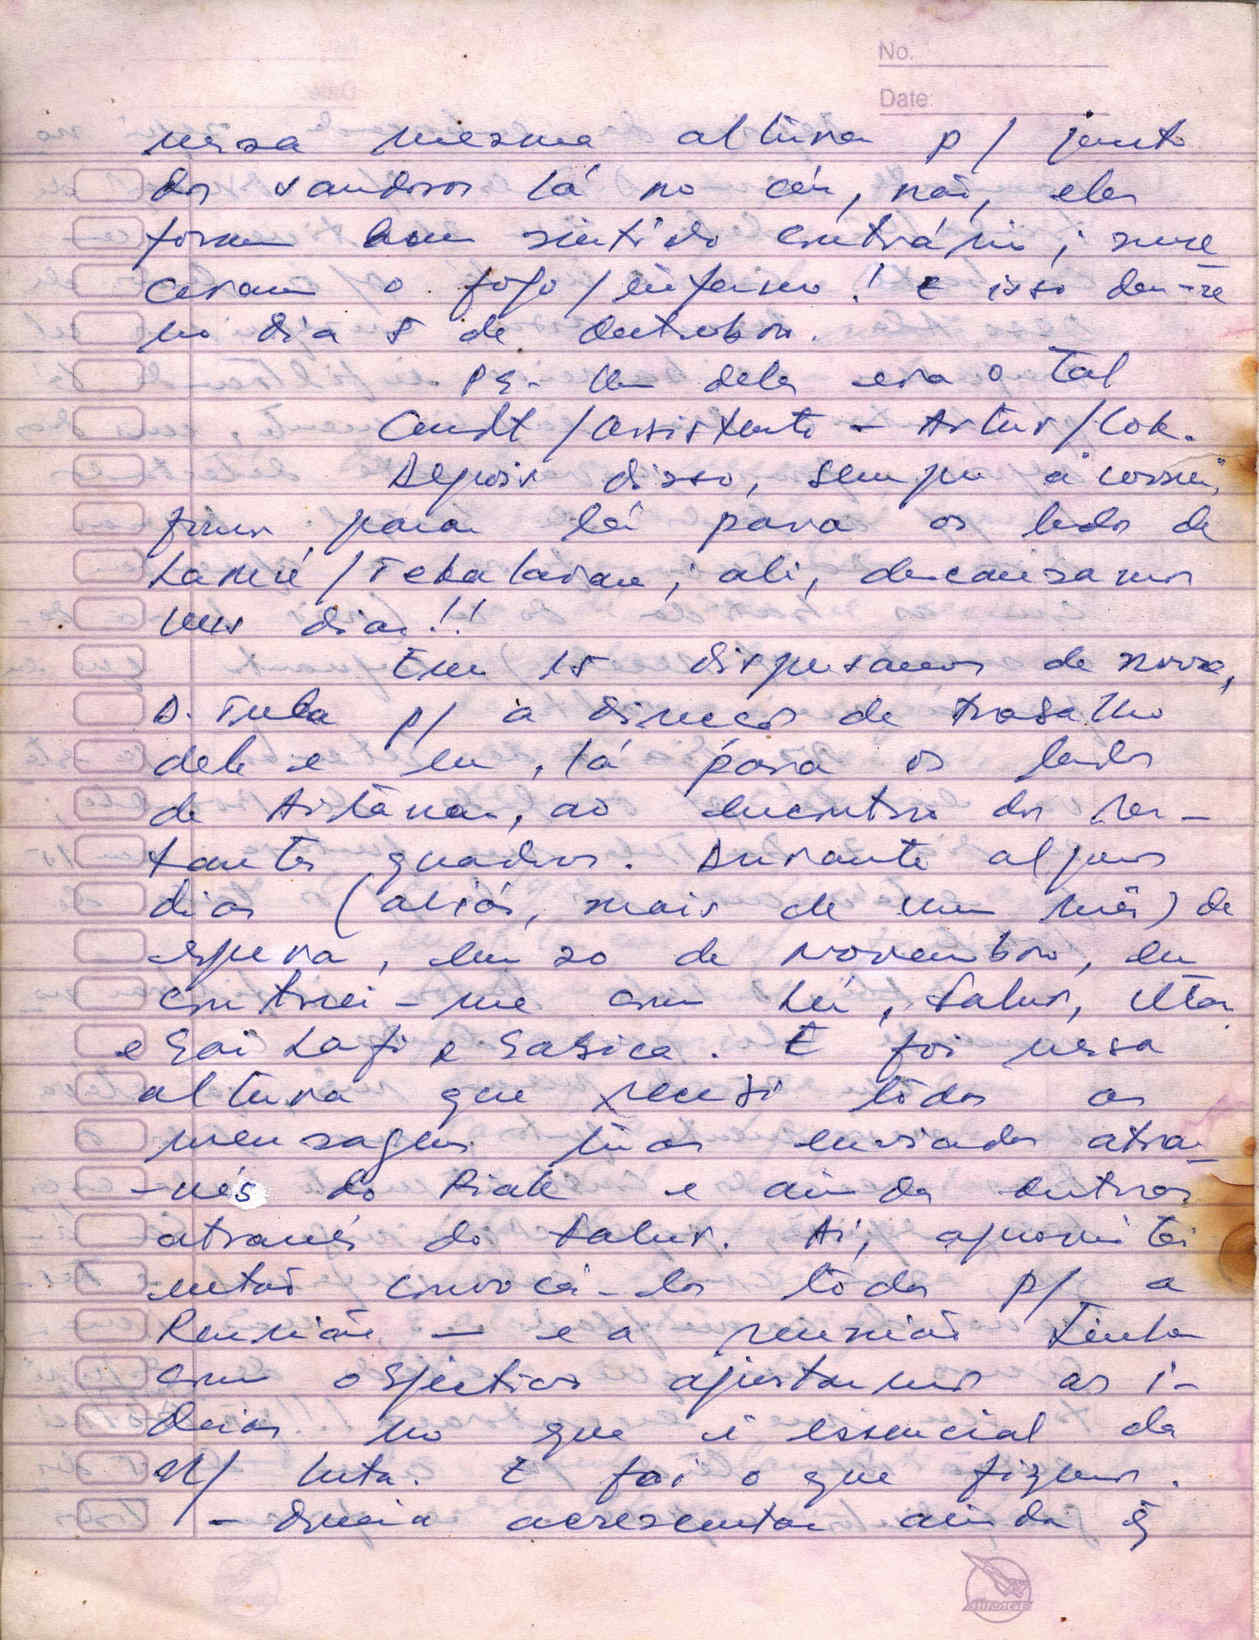 No.
Date
nessa mesma altura p/ junto
dos saudosos lá no céu, não, eles
foram sentido contrário; mere
ceram o fogo/inferno! E isso deu-se
no dia 5 de Outubro.
PS- Um deles era o tal
Cmdt/assistente - Artur/Cok.
Depois disso, sempre a correr,
fomos para lá para os lados de
Laruí/; ali, descansamos
uns dias!!
Em 15 dispersamos de novo,
D. Tula p/ a direcção de trabalho
dele e eu, lá para os lados
de Aitána, ao encontro dos res-
tantes quadros. Durante alguns
dias (aliás, mais de um mês) de
espera, em 20 de Novembro, en
contrei-me com Lú, Sabur, Uta
e Gai Lafi e Gabica. E foi nessa
altura que recebi todas as
mensagens tuas enviadas atra-
-vés do Riak e ainda outras
através do Sabur. Aí, aproveitei
então convocá-los todos p/ a
Reunião - e a reunião tinha
como objectivo ajustarmos as i-
deias no que é essencial da
N/ luta. E foi o que fizemos.
- Queria acrescentar ainda q